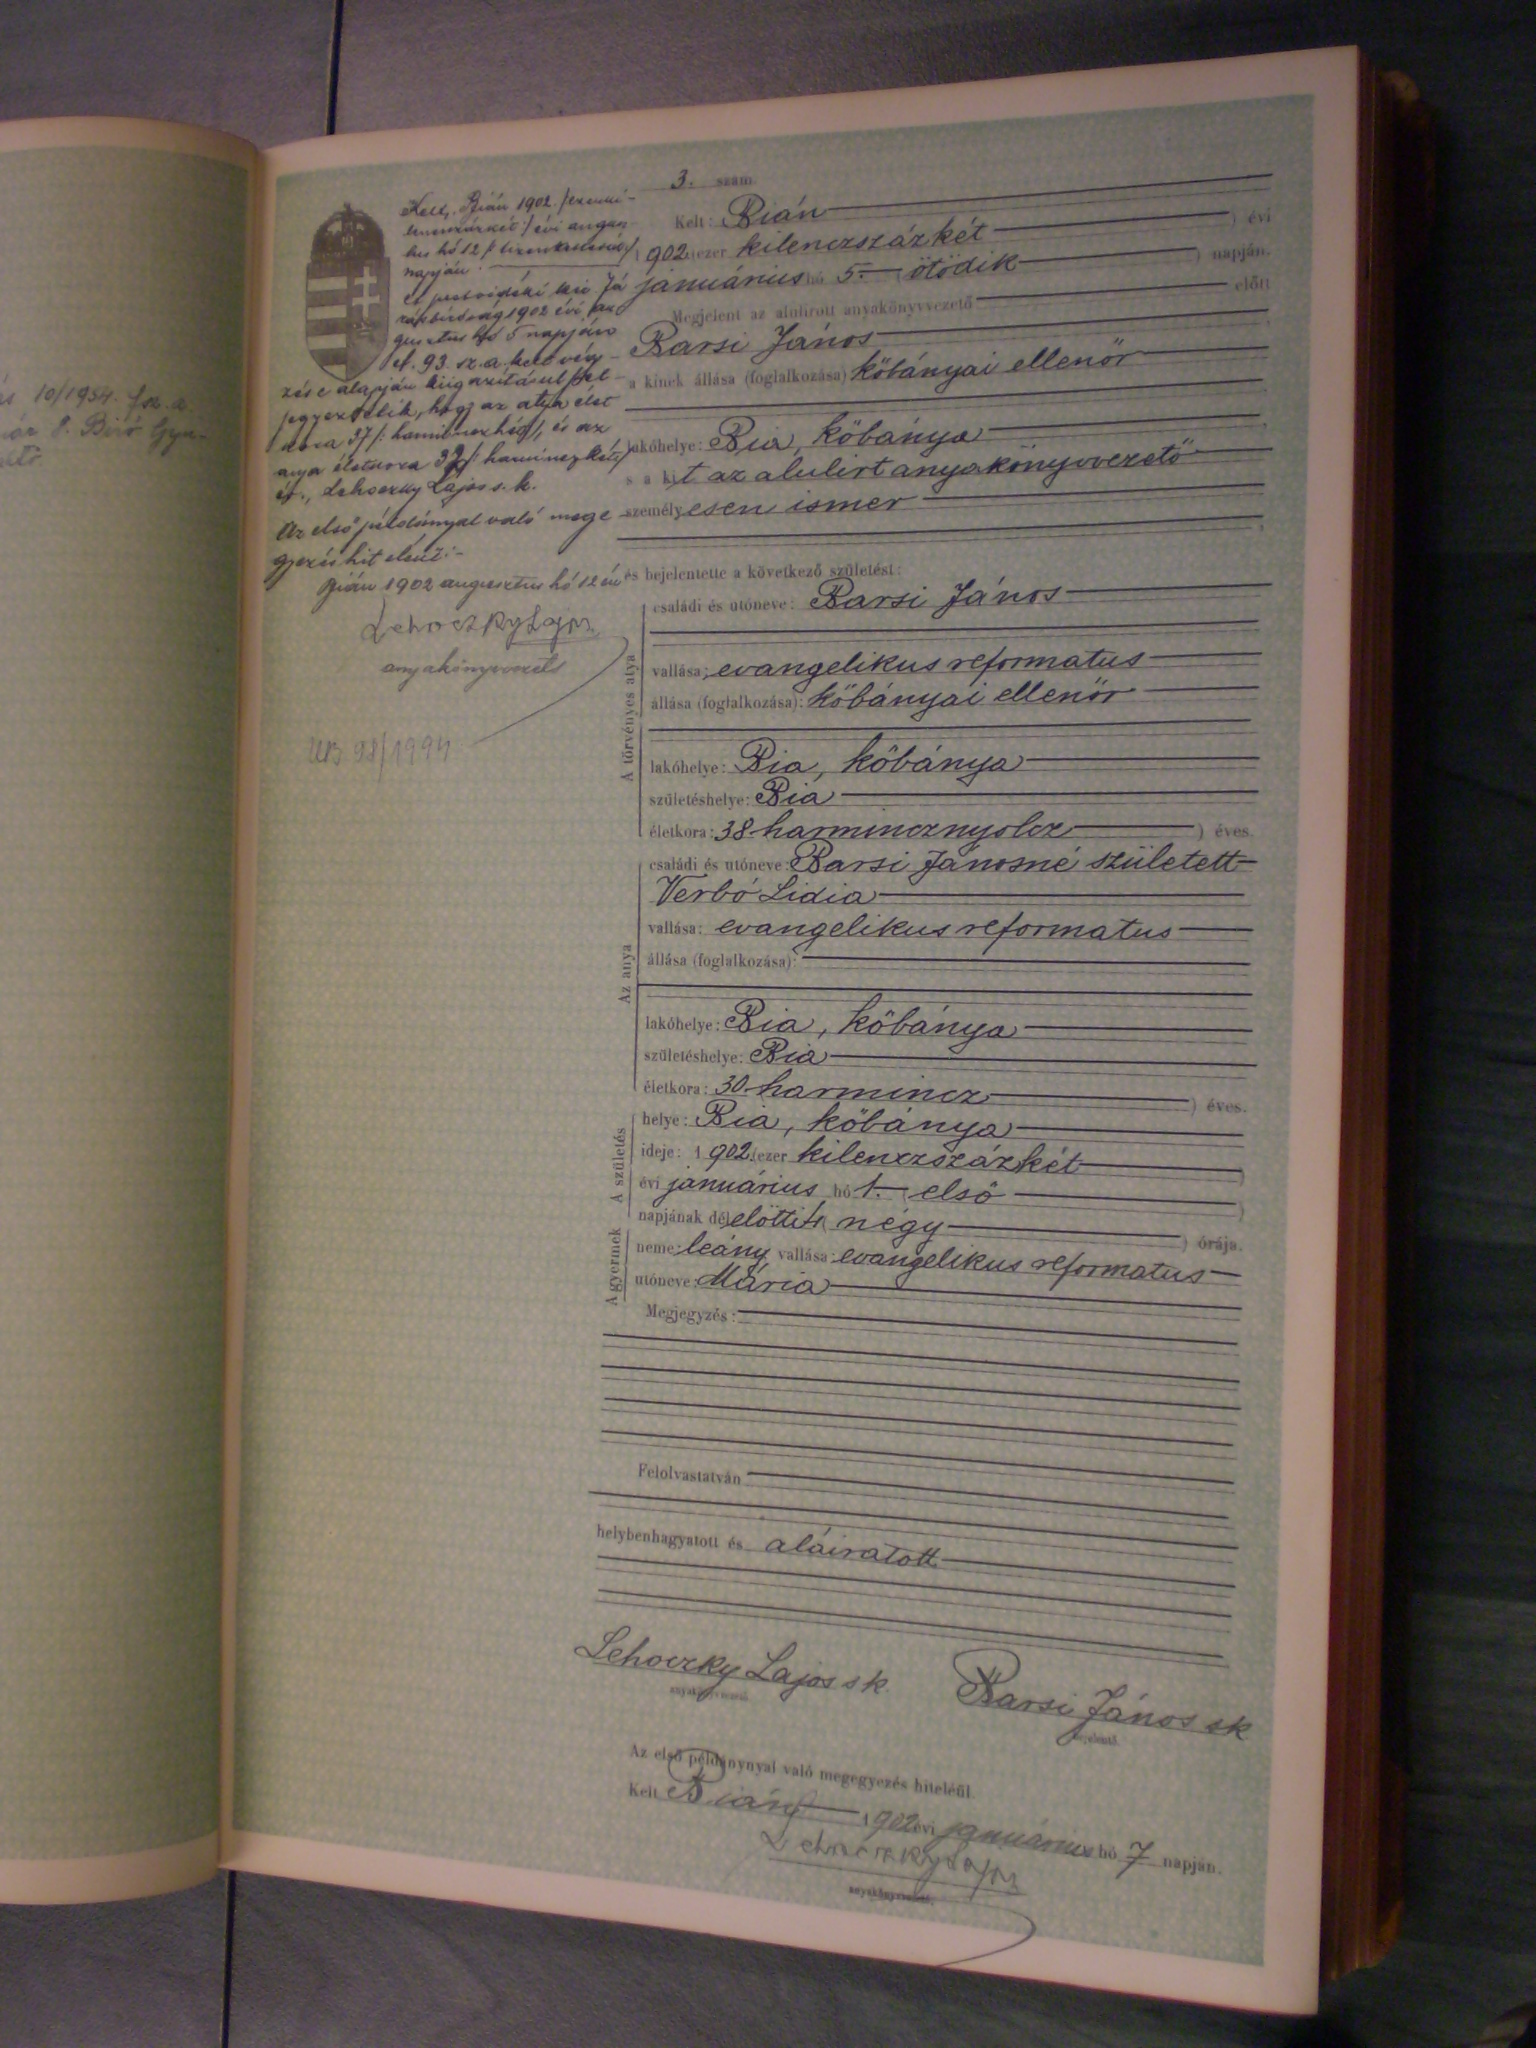 10/1954.
8. Biró Gyu-
Kelt, Bián 1902. /ezerki-
lenczszázkét/ évi augusz
tus hó 12
napján.
A pestvidéki kir. já
rásbiróság 1902 évi au
gusztus hó 5 napján
93. sz. a. kelt vég-
zése alapján kiigazításul fel-
jegyeztetik, hogy az atya élet
kora 37 /: harminczhét/, és az
anya életkora 32 /: harminczkét/
év., Lehoczky Lajos s. k.
Az első példánnyal való mege
gyezés hiteléül:-
Bián 1902 augusztus hó 12 én
Lehoczky Lajos
anyakönyvvezető
98/1994
3. szám.
Kelt: Bián
1902 (ezer kilenczszázkét ) évi
január­ius hó 5. ( ötödik ) napján.
Megjelent az alulirott anyakönyvvezető előtt
Barsi János
a kinek állása (foglalkozása) kőbányai ellenőr
lakóhelye: Bia, kőbánya
s a kit az alulirt anyakönyvvezető
személyesen ismer
és bejelentette a következő születést:
A törvényes atya
családi és utóneve: Barsi János
vallása: evangelikus reformatus
állása (foglalkozása): kőbányai ellenőr
lakóhelye: Bia, kőbánya
születéshelye: Bia
életkora: 38. harmincznyolcz ) éves.
Az anya
családi és utóneve: Barsi Jánosné született
Verbó Lidia
vallása: evangelikus reformatus
állása (foglalkozása):
lakóhelye: Bia, kőbánya
születéshelye: Bia
életkora: 30. harmincz ) éves.
A születés
helye: Bia, kőbánya
ideje: 1902. (ezer kilenczszázkét )
évi január­ius hó 1. ( első )
napjának délelőtti 4 ( négy ) órája.
A gyermek
neme: leány vallása: evangelikus reformatus
utóneve: Mária
Megjegyzés:
Felolvastatván
helybenhagyatott és aláiratott
Lehoczky Lajos s k. Barsi János sk
anyakönyvvezető. bejelentő.
Az első példánynyal való megegyezés hiteléül.
Kelt Bián 1902 évi január­ius hó 7 napján.
Lehoczky Lajos
anyakönyvvezető.